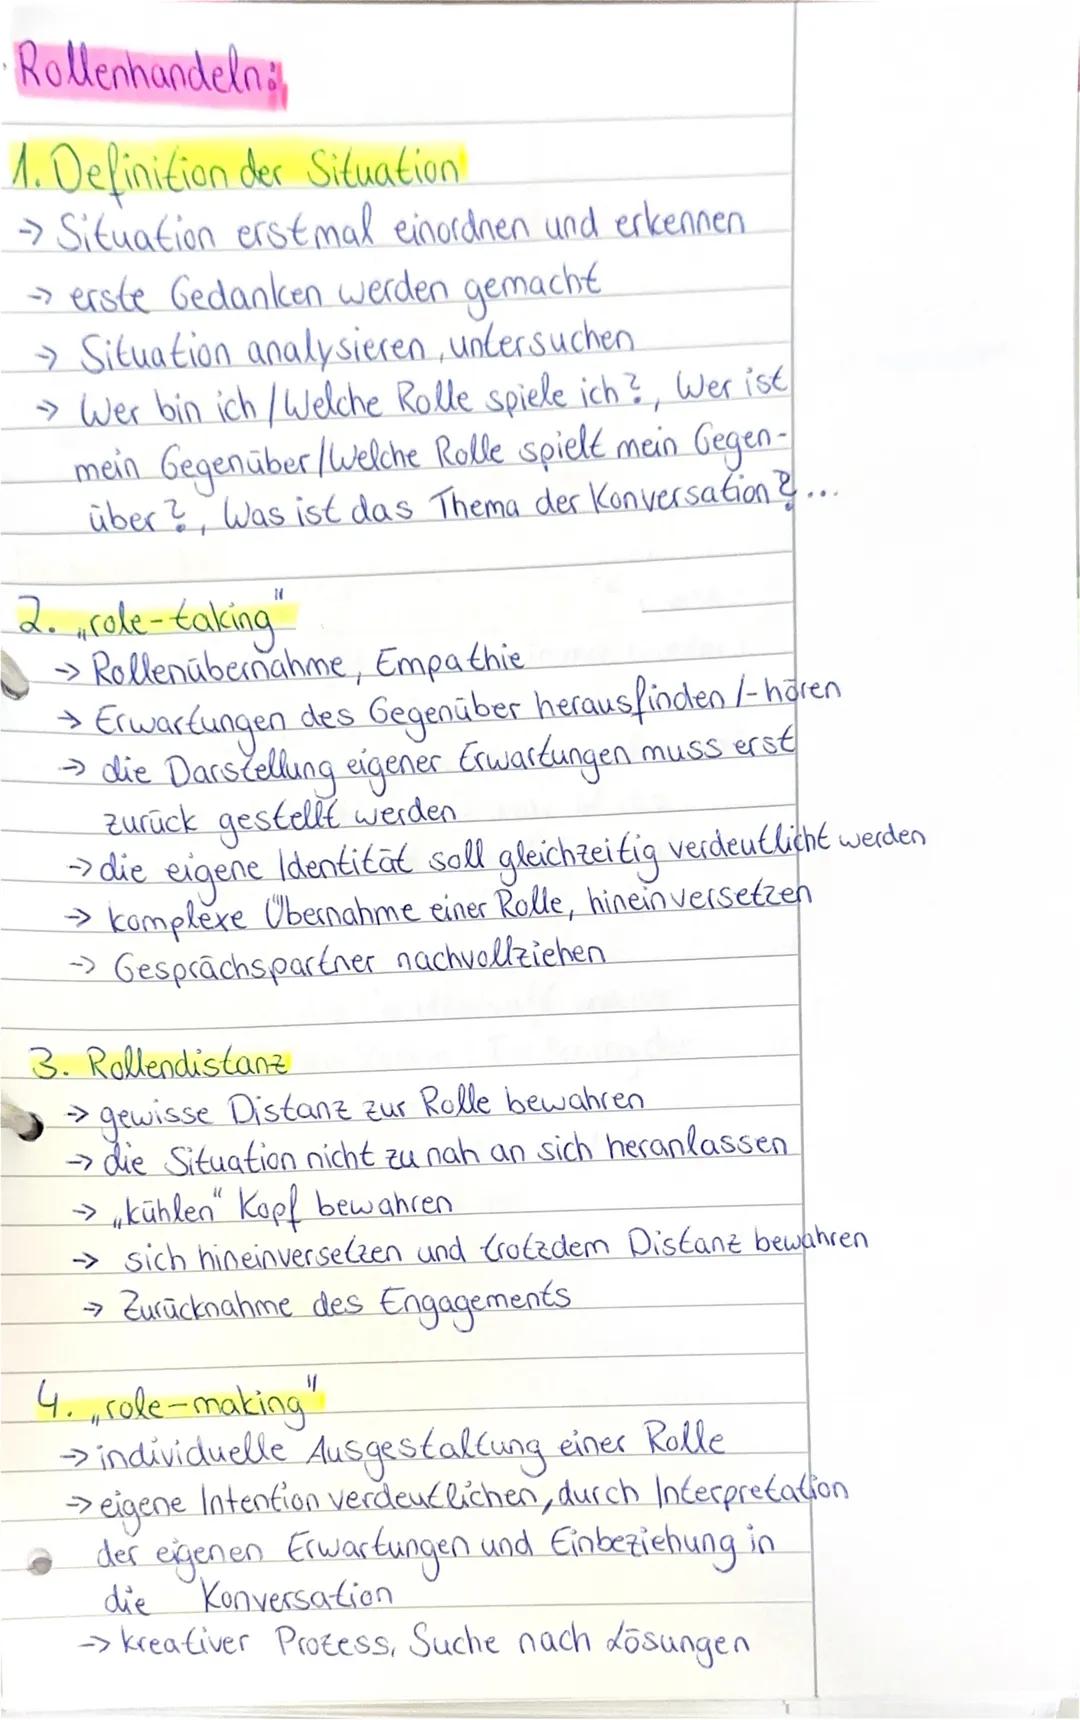 Rollenhandeln:
1. Definition der Situation
-> Situation erstmal einordnen und erkennen
-> erste Gedanken werden gemacht
-> Situation analysieren, untersuchen
-> Wer bin ich / Welche Rolle spiele ich?, Wer ist
mein Gegenüber/Welche Rolle spielt mein Gegen-
über?, Was ist das Thema der Konversation? ...
2. „role-taking"
-> Rollenübernahme, Empathie
-> Erwartungen des Gegenüber herausfinden /-hören
-> die Darstellung eigener Erwartungen muss erst
zurück gestellt werden
-> die eigene Identität soll gleichzeitig verdeutlicht werden
-> komplexe Übernahme einer Rolle, hineinversetzen
-> Gesprächspartner nachvollziehen
3. Rollendistanz
-> gewisse Distanz zur Rolle bewahren
-> die Situation nicht zu nah an sich heranlassen
-> „kühlen" Kopf bewahren
-> sich hineinversetzen und trotzdem Distanz bewahren
-> Zurücknahme des Engagements
4. „role-making"
-> individuelle Ausgestaltung einer Rolle
-> eigene Intention verdeutlichen, durch Interpretation
der eigenen Erwartungen und Einbeziehung in
die Konversation
-> kreativer Prozess, Suche nach Lösungen